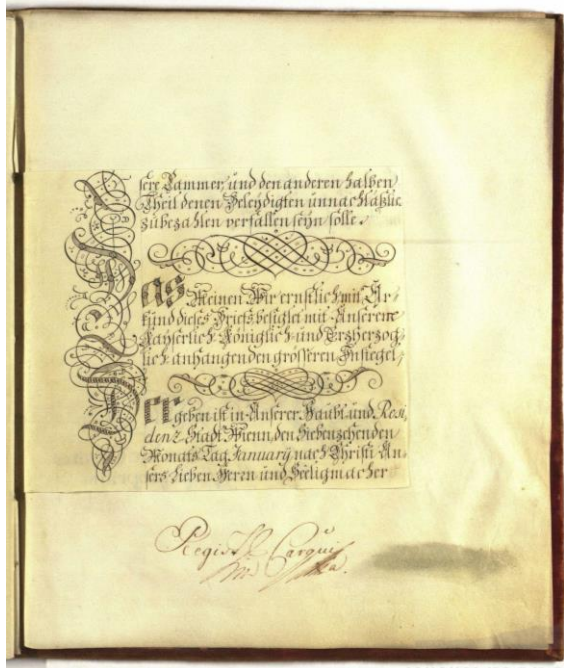 sere Cammer, und den anderen halben
Theil denen Beleydigten unnachläßlic
zubezahlen verfallen seyn solle.
Das Meinen Wir ernstlich mit Ur-
kund dieses Briefs besiglet mit Unserem
Kayserlich-Königlich-und Erzherzog-
lich anhangenden grösseren Insiegel,
Der geben ist in Unserer Haubt-und Resi-
denz Stadt Wienn den Siebenzehenden
Monats Tag January nach Christi Un-
sers Lieben Heren und Seeligmacher
Regist